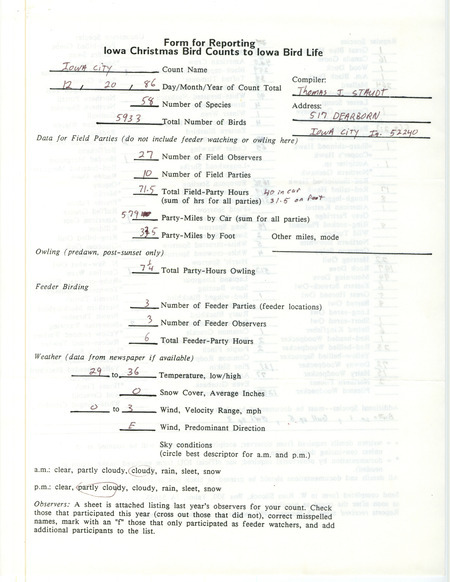 Form for Reporting
Iowa Christmas Bird Counts to Iowa Bird Life
Iowa City Count Name
12, 20, 86 Day/Month/Year of Count Total
Compiler:
Thomas J. Staudt
58 Number of Species
Address:
517 Dearborn
5933 Total Number of Birds
Iowa City Ia. 52240
Data for Field Parties (do not include feeder watching or owling here)
27 Number of Field Observers
10 Number of Field Parties
71.5 Total Field-Party Hours 40 in car
(sum of hrs for all parties) 31.5 on foot
579 Party-Miles by Car (sum for all parties)
Party-Miles by Foot Other miles, mode
Owling (predawn, post-sunset only)
7 1/4 Total Party-Hours Owling
Feeder Birding
3 Number of Feeder Parties (feeder locations)
3 Number of Feeder Observers
6 Total Feeder-Party Hours
Weather (data from newspaper if available)
29 to 36 Temperature, low/high
0 Snow Cover, Average Inches
0 to 3 Wind, Velocity Range, mph
E Wind, Predominant Direction
Sky conditions
(circle best descriptor for a.m. and p.m.)
a.m.: clear, partly cloudy, cloudy, rain, sleet, snow
p.m.: clear, partly cloudy, cloudy, rain, sleet, snow
Observers: A sheet is attached listing last year's observers for your count. Check
those that participated this year (cross out those that did not), correct misspelled
names, mark with an "f" those that only participated as feeder watchers, and add
additional participants to the list.